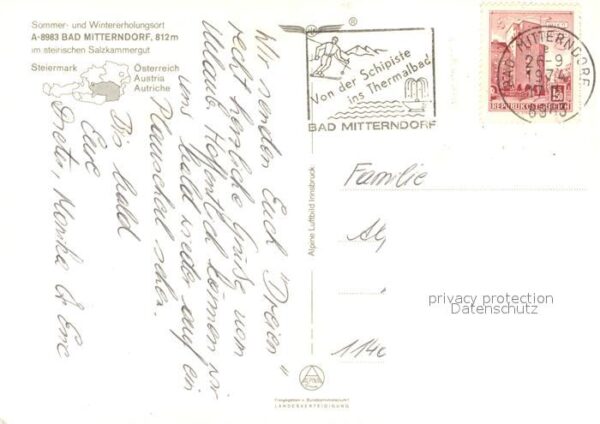 Sommer- und Wintererholungsort
A-8983 BAD MITTERNDORF, 812 m
im steirischen Salzkammergut
Steiermark
Österreich
Austria
Autriche
Wir senden Euch "Dreien"
recht herzliche Grüße vom
Urlaub. Hoffentlich können wir
uns bald wieder auf ein
Plauschal sehen.
Bis bald
Eure
Dieter, Monika &
Von der Schipiste
ins Thermalbad
BAD MITTERNDORF
BAD MITTERNDORF
26-9
1974
8983
REPUBLIK ÖSTERREICH
Alpine Luftbild Innsbruck
Familie
114
privacy protection
Datenschutz
LANDESVERTEIDIGUNG